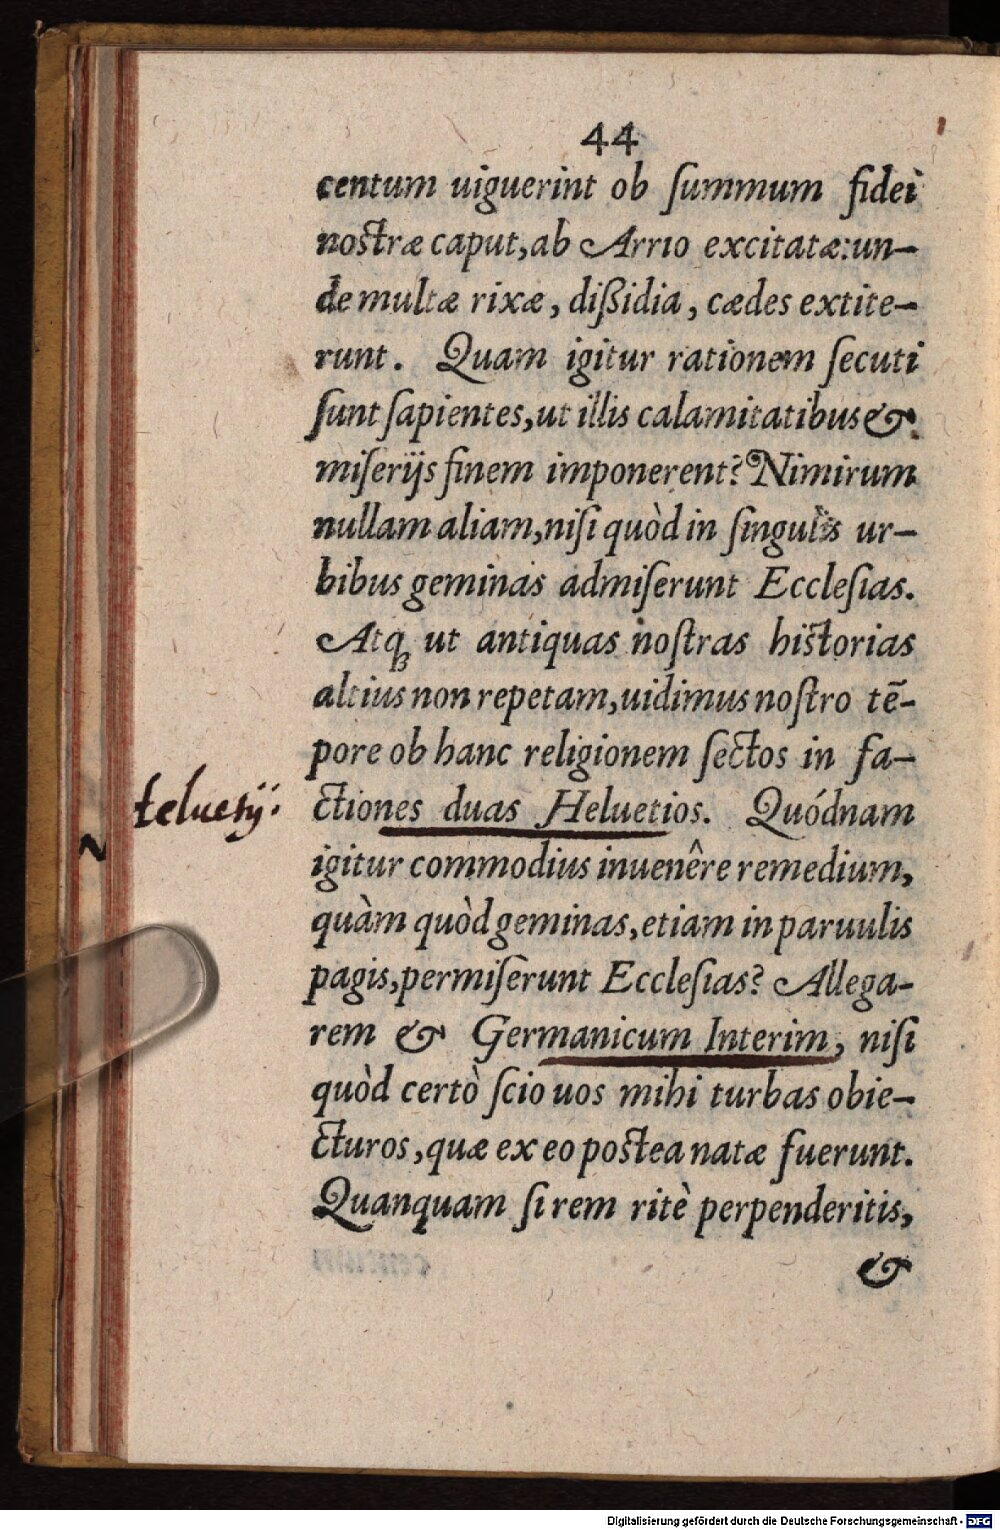 44
centum uiguerint ob ſummum fidei
noſtræ caput, ab Arrio excitatæ: un-
de multæ rixæ, dißidia, cædes extite-
runt. Quam igitur rationem ſecuti
ſunt ſapientes, ut illis calamitatibus &
miſerijs finem imponerent? Nimirum
nullam aliam, niſi quòd in ſingulis ur-
bibus geminas admiſerunt Eccleſias.
Atq; ut antiquas noſtras hiſtorias
altius non repetam, uidimus noſtro tē-
pore ob hanc religionem ſectos in fa-
ctiones duas Heluetios. Quódnam
Heluetij.
igitur commodius inuenêre remedium,
quàm quòd geminas, etiam in paruulis
pagis, permiſerunt Eccleſias? Allega-
rem & Germanicum Interim, niſi
quòd certò ſcio uos mihi turbas obie-
cturos, quæ ex eo poſtea natæ fuerunt.
Quanquam ſi rem ritè perpenderitis,
&
Digitalisierung gefördert durch die Deutsche Forschungsgemeinschaft - DFG